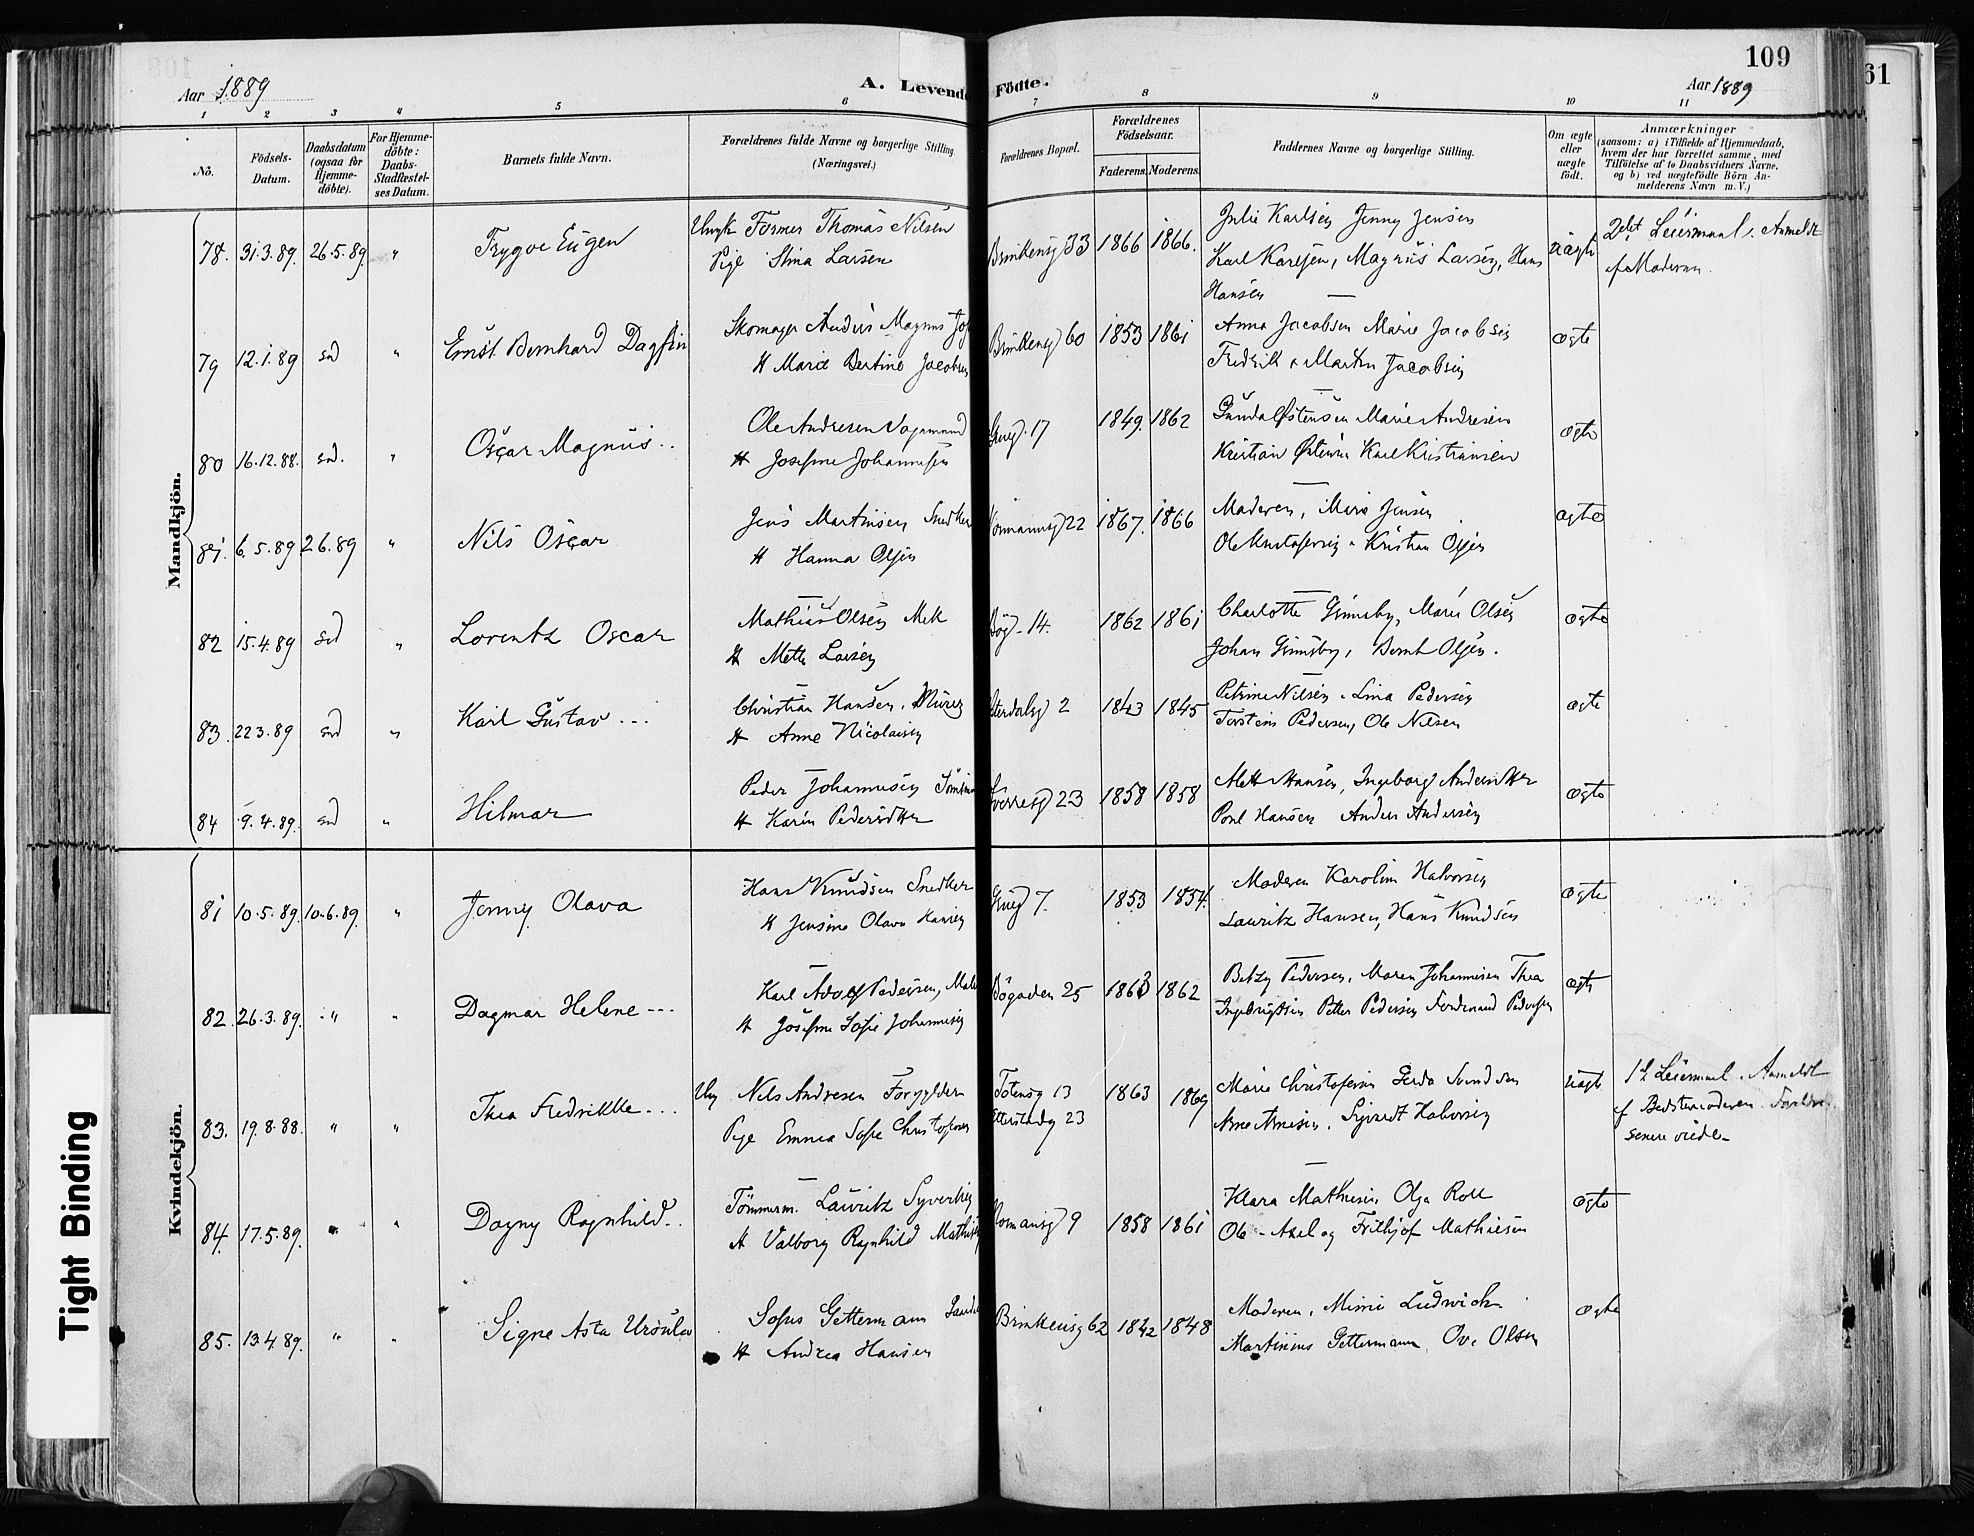 109
61
Aar 1889
A. Levende Födte.
Aar 1889
1 2 3 4 5 6 7 8 9 10 11
No.
Födsels-Datum.
Daabsdatum (ogsaa for Hjemme-döbte).
For Hjemme-döbte: Daabs-Stadfæstel-ses Datum.
Barnets fulde Navn.
Forældrenes fulde Navne og borgerlige Stilling. (Næringsvei.)
Forældrenes Bopæl.
Forældrenes Födselsaar.
Faderens. Moderens.
Faddernes Navne og borgerlige Stilling.
Om ægte eller uægte födt.
Anmærkninger
(saasom: a) i Tilfælde af Hjemmedaab,
hvem der har forrettet samme, med
Tilföielse af to Daabsvidners Navne,
og b) ved uægtefödte Börn An-
melderens Navn m. V.)
Mandkjön.
78. 31.3.89. 26.5.89. " Trygve Eugen
Ungk Former Thomas Nilsen
Pige Stina Larsen
33 1866 1866.
Julie Karlsen Jenny Jensen
Karl Karlsen, Magnus Larsen, Hans
Hansen
uægte
2det Leiermaal. Anmeldt
af Moderen.
79 12.1.89 sad " Ernst Bernhard Dagfin
Skomager Andreas Magnus
H Marie Bertine Jacobsen
60 1853 1861
Anna Jacobsen Marie Jacobsen
Fredrik & Martin Jacobsen
ægte
80 16.12.88. sad. " Oscar Magnus
Ole Andresen Vognmand
H Josefine Johannesen
17 1849. 1862
Gunda Østensen Marie Andresen
Kristian Østensen Karl Kristiansen
ægte
81. 6.5.89 2 6.89 " Nils Oscar
Jens Martinsen Snedker
H Hanna Olsen
22 1867. 1866
Moderen, Mina Jensen
Ole Kristofersen Kristian Olsen
ægte
82 15.4.89 sad " Lorentz Oscar
Mathias Olsen Mek
H Mette Larsen
Bøg. 14. 1862 1861
Charlotte Grimsby, Marie Olsen
Johan Grimsby, Bernt Olsen.
ægte
83. 22 3.89 sad " Karl Gustav
Christian Hansen. Murer
H Anne Nicolaisen
2 1843 1845
Petrine Nilsen. Lina Pedersen
Torstein Pedersen, Ole Nilsen
ægte
84 9.4.89. sad " Hilmar
Peder Johannesen
H Karin Pedersdtter
Sverresg 23 1858 1858
Mette Hansen, Ingeborg Andersdtter
Poul Hansen Anders Andersen
ægte
Kvindekjön.
81 10.5.89. 10.6.89. " Jenny Olava
Hans Knudsen Snedker
H Jensine Olava Hansen
7. 1853 1854.
Moderen Karoline Halvorsen
Lauritz Hansen, Hans Knudsen
ægte
82. 26.3.89. " " Dagmar Helene
Karl Adolf Pedersen, Maler
H Josefine Sofie Johannesen
Bøgaden 25 1863 1862
Betzy Pedersen. Maren Johannesen Thea
Ingebrigtsen Petter Pedersen Ferdinand Pedersen
ægte
83. 19.8.88. " " Thea Fredrikke
Ung Nils Andresen Forgylder
Pige Emma Sofie Christofersen
Totensg 13
Etterstadg 23
1863 1869
Marie Christofersen Gerda Svendsen
Arne Arnesen. Sigvart Halvorsen
uægte
1ste Leiermaal. Anmeldt
af Bedstemoderen.
senere viede
84. 17.5.89. " " Dagny Ragnhild
Tømmerm. Lauritz Syvertsen
H Valborg Ragnhild
9 1858 1861
Klara Mathiesen Olga Roll
Ole - Axel og Fritjof Mathiesen
ægte
85. 13.4.89. " " Signe Asta Ursula
Sofus Gettermann
H Andrea Hansen
Brinkensg 62 1842 1848
Moderen, Mimi Ludwick
Martinius Gettermann, Ove Olsen
ægte
Tight Binding